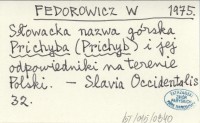 FEDOROWICZ W 1975.
Słowacka nazwa górska
Prichyba (Prichyb) i jej
odpowiedniki na terenie
Polski. — Slavia Occidentalis
32.